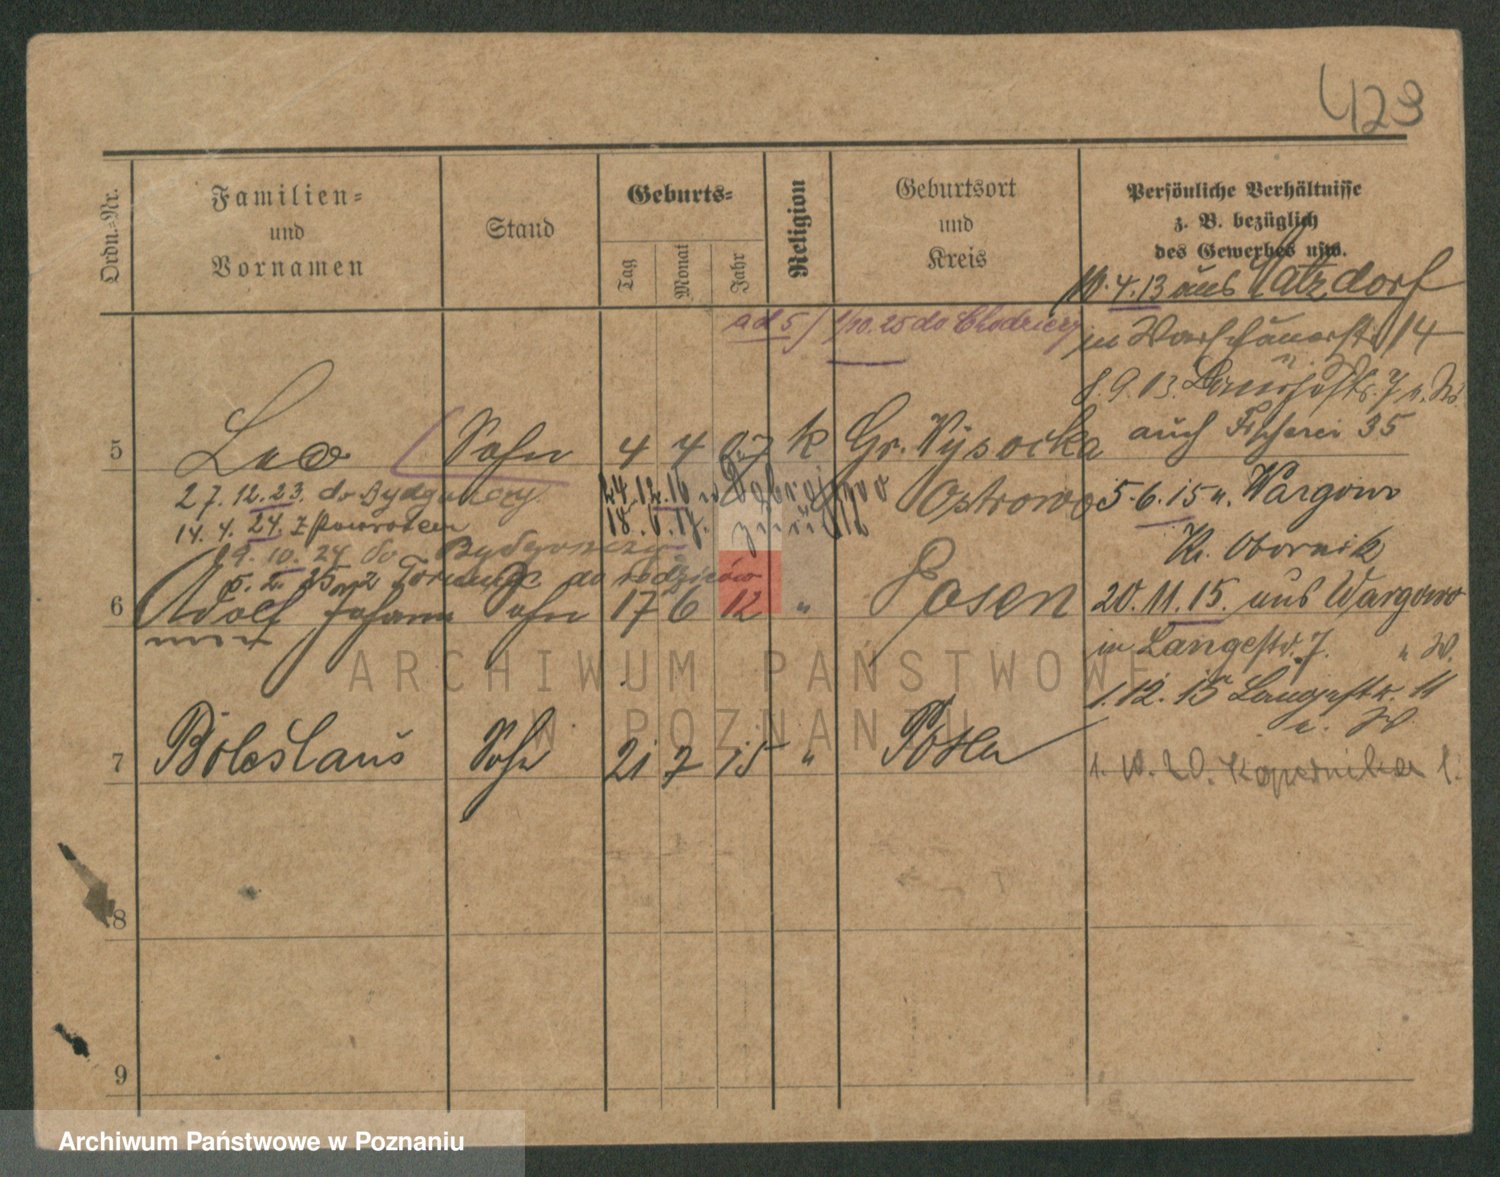 423
Ordn.-Nr.
Familien-
und
Vornamen
Stand
Geburts-
Tag
Monat
Jahr
Religion
Geburtsort
und
Kreis
Persönliche Verhältnisse
z. B. bezüglich
des Gewerbes usw.
10.4.13 aus
in Warschauerstr. 14
ad 5/ 1/10.25 do Chodzieży
8.9.13.
auch Fischerei 35
5 Leo Sohn 4 4 07 k Gr. Wysocka
27.12.23. do Bydgoszczy 24.12.16 n Ostrowo
5.6.15 n. Wargowo
14.4.24. z powrotem 18.6.17. zurück
Kr. Obornik
19.10.24 do Bydgoszczy
5.2.25 z Torunia do rodziców
6 Adolf Johann Sohn 17 6 12 " Posen
20.11.15. aus Wargowo
in Langestr. 7. " W.
1.12.15 Langestr. 11
7 Boleslaus Sohn 21 7 15 " Posen
1.10.20. Kopernika
8
9
ARCHIWUM PAŃSTWOWE
W POZNANIU
Archiwum Państwowe w Poznaniu